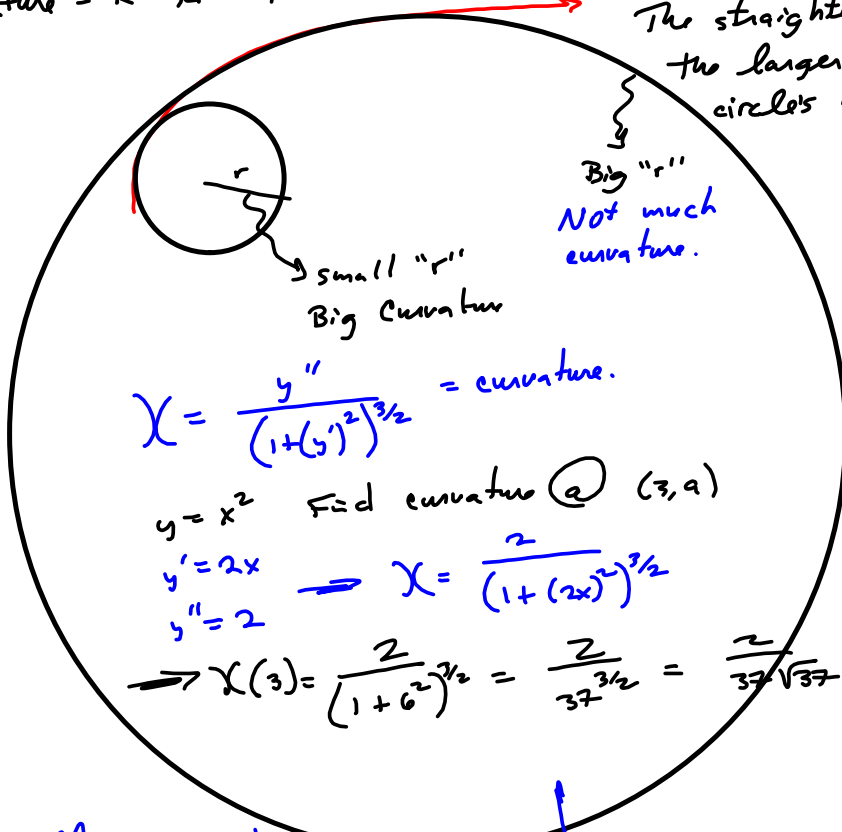 The straight
the larger
circle's
r
Big "r"
Not much
curvature.
small "r"
Big Curvature
χ = y'' / (1+(y')²)^3/2 = curvature.
y = x² Find curvature @ (3,9)
y' = 2x
y'' = 2
→ χ = 2 / (1 + (2x)²)^3/2
→ χ(3) = 2 / (1 + 6²)^3/2 = 2 / 37^3/2 = 2 / 37√37